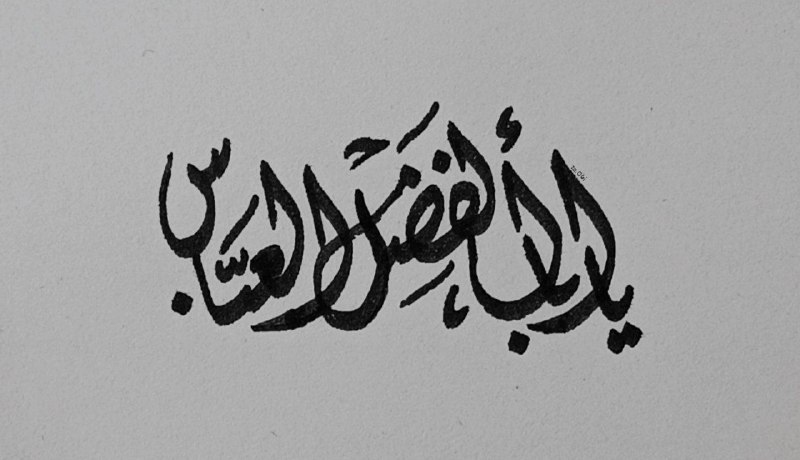 يا أبا الفضل العبّاس